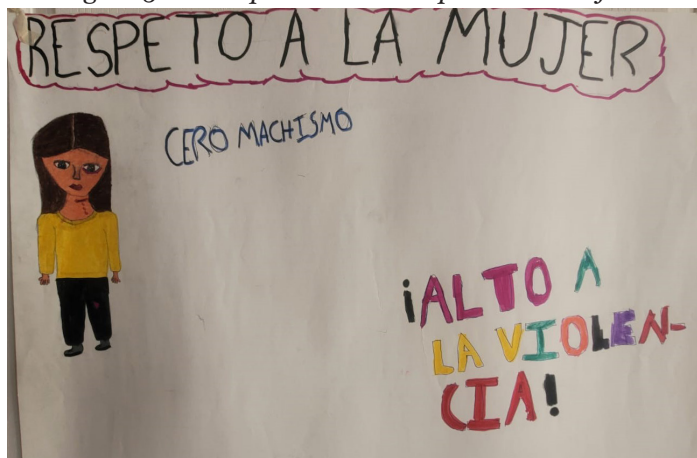 RESPETO A LA MUJER
CERO MACHISMO
¡ALTO A
LA VIOLEN-
CIA!